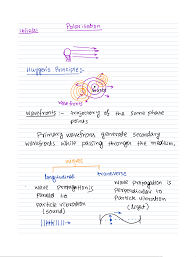 Polarisation
Huygen's Principle:
Wavefronts
Wavefronts :- trajectory of the same phase
points
Primary wavefronts generate secondary
wavefronts while passing through the medium.
waves
longitudinal
transverse
wave propagation is
parallel to
particle vibration
(sound)
wave propagation is
perpendicular to
particle vibration
(light)